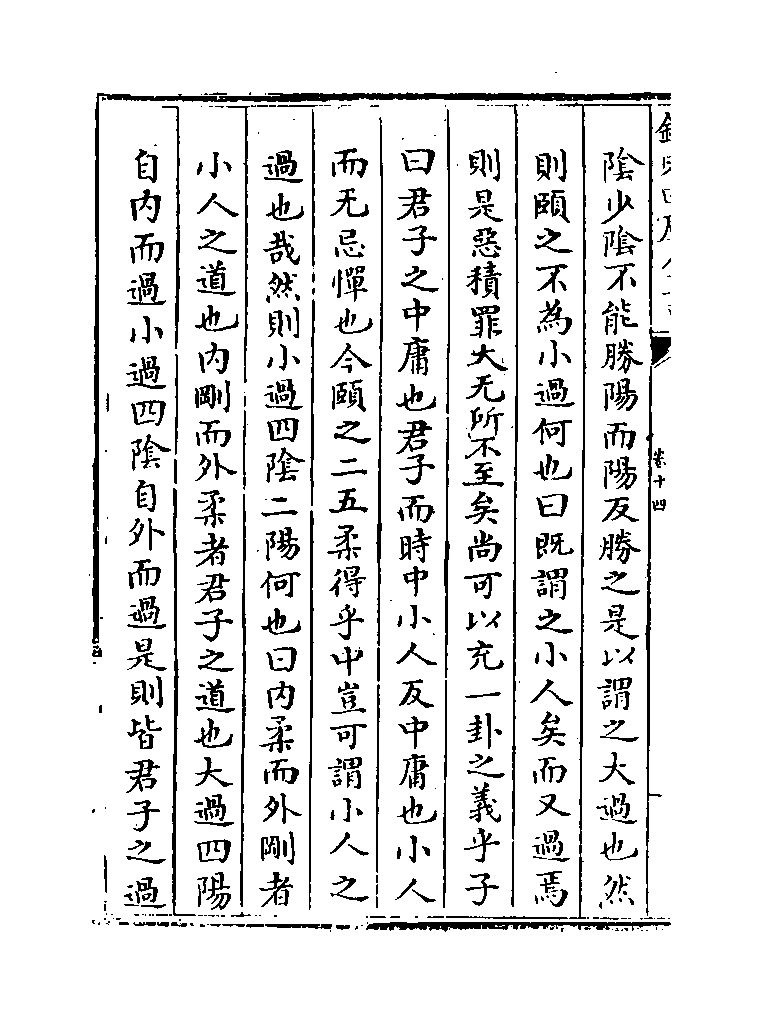 陰少陰不能勝陽而陽反勝之是以謂之大過也然
則頤之不為小過何也曰既謂之小人矣而又過焉
則是惡積罪大无所不至矣尚可以充一卦之義乎子
曰君子之中庸也君子而時中小人反中庸也小人
而无忌憚也今頤之二五柔得乎中豈可謂小人之
過也哉然則小過四陰二陽何也曰内柔而外剛者
小人之道也内剛而外柔者君子之道也大過四陽
自内而過小過四陰自外而過是則皆君子之過
卷十四